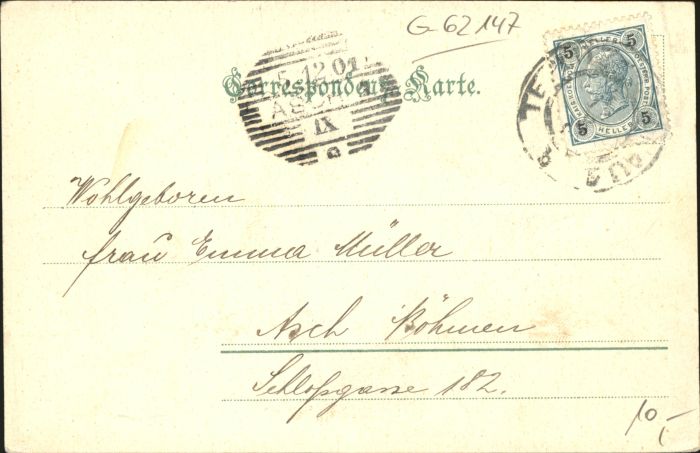 G 62147
Correspondenz-Karte.
5 12 01
AS
IX
5 HELLER 5
5 HELLER 5
TE
Wohlgeboren
frau Emma Müller
Asch Böhmen
Schloßgasse 182.
10,-